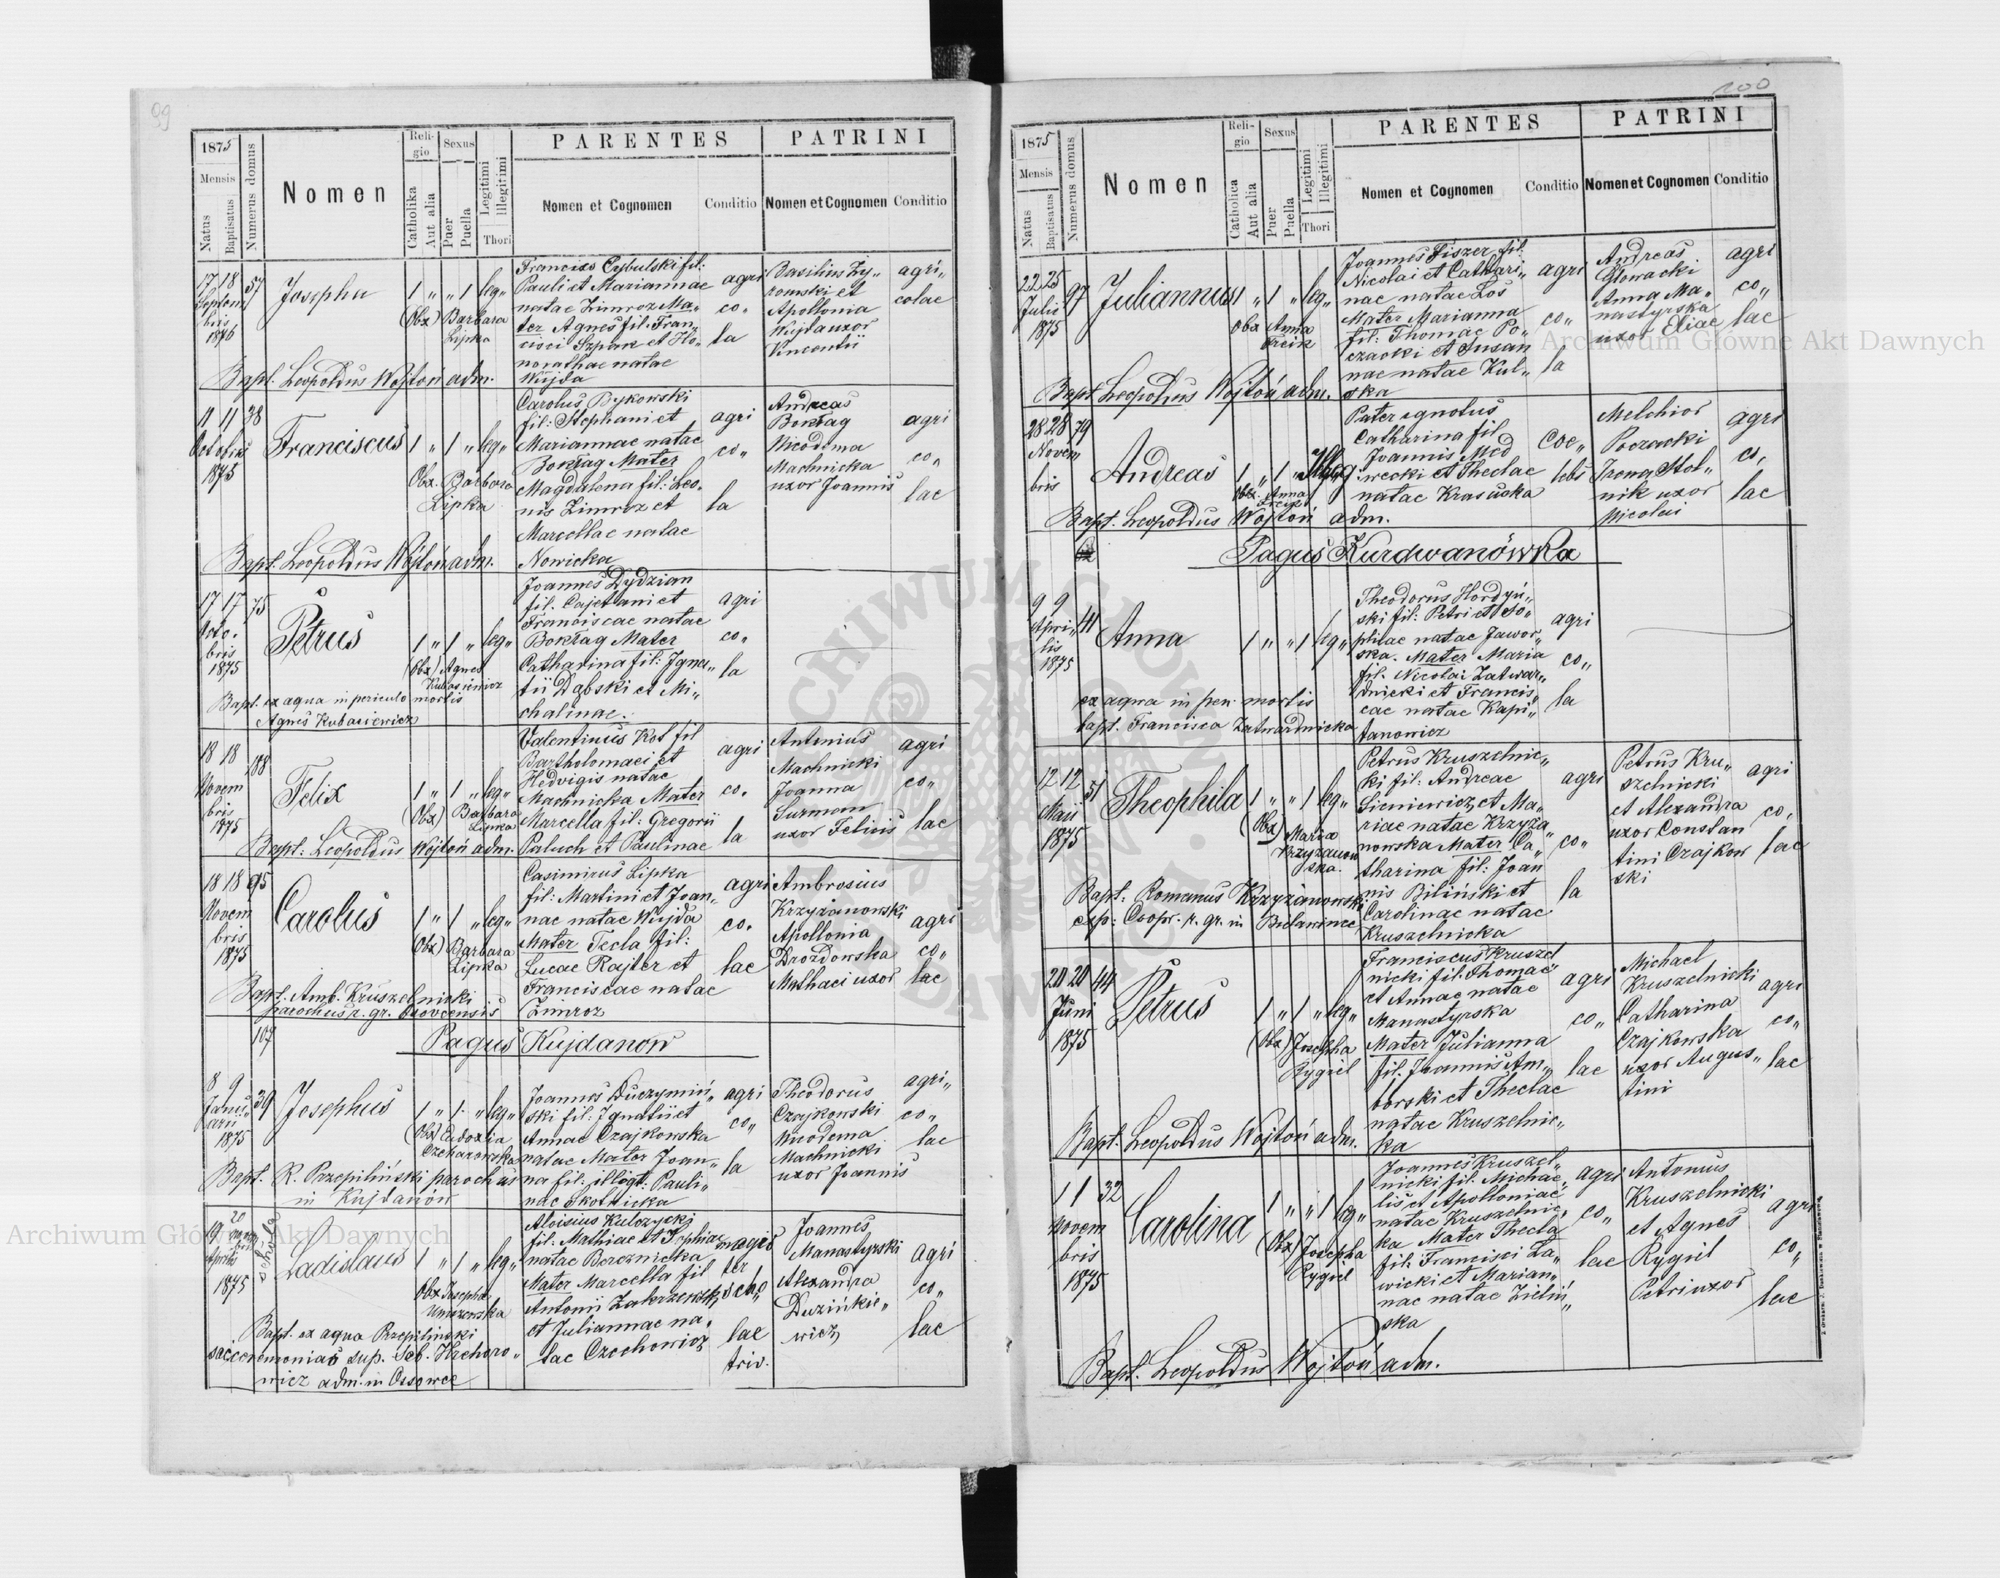 99
1875
Mensis
Natus
Baptisatus
Numerus domus
Nomen
Religio
Catholika
Aut alia
Sexus
Puer
Puella
Legitimi
Illegitimi
Thori
PARENTES
Nomen et Cognomen
Conditio
PATRINI
Nomen et Cognomen
Conditio
17 18 57
Septem
bris
Josepha
1 " " 1 leg"
Obx) Barbara
Lipka
Cybulski fil:
Pauli et Mariannae
natae Zimroz Ma-
ter Agnes fil: Fran-
cisci Szpak et Ho-
norathae natae
Wujda
agri
co"
la
Basilius Zy-
zomski et
Apollonia
Wujda uxor
Vincentii
agri"
colae
Bapt. Leopoldus Wojtoń adm.
11 11 38
Octobris
1875
Franciscus
1 " 1 " leg"
Obx. Barbara
Lipka
Carolus Bykowski
fil: Stephani et
Mariannae natae
Bokłag Mater
Magdalena fil: Leo-
nis Zimroz et
Marcellae natae
Nowicka
agri
co"
la
Andreas
Bokłag
Nicodema
Machnicka
uxor Joannis
agri
co"
lae
Bapt. Leopoldus Wojtoń adm.
17 17 75
Octo-
bris
1875
Petrus
1 " 1 " leg"
(Obx) Agnes
Kubasiewicz
Joannes Dydzian
fil. Cajetani et
Franciscae natae
Bokłag Mater
Catharina fil: Igna-
tii Dąbski et Mi-
chalinae.
agri
co"
la
Bapt. ex aqua in periculo mortis
Agnes Kubasiewicz
18 18 188
Novem
bris
1875
Felix
1 " 1 " leg"
(Obx) Barbara
Lipka
Valentinus Kot fil
Bartholomaei et
Hedvigis natae
Machnicka Mater
Marcella fil: Gregorii
Paluch et Paulinae
agri
co"
la
Antonius
Machnicki
Joanna
Surmom
uxor Felicis
agri
co"
lae
Bapt: Leopoldus Wojtoń adm.
18 18 95
Novem
bris
1875
Carolus
1 " 1 " leg"
Obx) Barbara
Lipka
Casimirus Lipka
fil: Martini et Joan-
nae natae Wujda
Mater Tecla fil:
Lucae Rajter et
Franciscae natae
Zimroz
agri
co"
lae
Ambrosius
Krzyżanowski
Apollonia
Drozdowska
Mathaei uxor
agri
co"
lae
Bapt. Amb. Kruszelnicki
parochus r. gr. Osovcensis
107
Pagus Kujdanów
8 9 39
1875
Josephus
1 " 1 " leg"
(Obx) Eudoxia
Joannes Duczymiń-
ski fil: Ignatii et
Annae Czajkowska
natae Mater Joan-
na fil: illegt: Pauli-
nae Skotnicka
agri
co"
la
Theodorus
Czajkowski
Nicodema
Machnicki
uxor Joannis
agri"
co"
lae
Bapt. R. Przepiliński parochus
in Kujdanów
19 20
Aprilis
1875
schola
Ladislaus
1 " 1 " leg"
Obx Josepha
Aloisius Kulczycki
fil: Mathiae et Sophiae
natae Bereznicka
Mater Marcella fil
Antonii
et Juliannae na-
tae Czochowicz
magis
ter
scho"
lae
triv.
Joannes
Manastyrski
Alexandra
Duzińkie"
wicz
agri
co"
lae
Bapt. ex aqua Przepiliński
adm. in Ossowce
100
1875
Mensis
Natus
Baptisatus
Numerus domus
Nomen
Religio
Catholica
Aut alia
Sexus
Puer
Puella
Legitimi
Illegitimi
Thori
PARENTES
Nomen et Cognomen
Conditio
PATRINI
Nomen et Cognomen
Conditio
22 25 97
Julii
1875
Juliannus
1 " 1 " leg"
Obx Anna
Joannes Fiszer fil.
Nicolai et Cathari-
nae natae Łoś
Mater Marianna
fil: Thomae Po-
czacki et Susan
nae natae Kul-
ska
agri
co"
la
Andreas
Głowacki
Anna Ma-
nastyrska
uxor Eliae
agri
co"
lae
Bapt Leopoldus Wojtoń adm.
28 28 79
Novem
bris
Andreas
1 " 1 " Illeg
Obx. Anna
Pater ignotus
Catharina fil
Joannis
et Theclae
natae Krasuska
coe"
lebs
Melchior
Poczacki
Irena Stol-
nik uxor
Nicolai
agri
co"
lae
Bapt. Leopoldus Wojtoń adm.
Pagus Kurdwanówka
9 9 41
Apri-
lis
1875
Anna
1 " " 1 leg"
Theodorus Hordyń-
ski fil: Petri et So-
phiae natae Jawor-
ska. Mater Maria
fil. Nicolai Zatwar-
dnicki et Francis-
cae natae Kapi-
tanowicz
agri
co"
la
ex aqua in per. mortis
bapt. Francisca Zatwardnicka
12 12 31
Maii
1875
Theophila
1 " " 1 leg"
(Obx) Maria
Krzyżanow
ska.
Petrus Kruszelnic-
ki fil: Andreae
Sieniewicz et Ma-
riae natae Krzyża-
nowska Mater Ca-
tharina fil: Joan
nis Biliński et
Carolinae natae
Kruszelnicka
agri
co"
la
Petrus Kru-
szelnicki
et Alexandra
uxor Constan
tini Czajkow
ski
agri
co"
lae
Bapt: Romanus Krzyżanowski
exp: Coop. r. gr. in Bielawince
20 20 44
Juni
1875
Petrus
1 " 1 " leg"
(Obx) Josepha
Rygiel
Franciscus Kruszel
nicki fil: Thomae
et Annae natae
Manastyrska
Mater Julianna
fil. Joannis Am-
borski et Theclae
natae Kruszelnic-
ka
agri
co"
lae
Michael
Kruszelnicki
Catharina
Czajkowska
uxor Augus-
tini
agri
co"
lae
Bapt. Leopoldus Wojtoń adm.
1 1 32
Novem
bris
1875
Carolina
1 " " 1 leg"
(Obx) Josepha
Rygiel
Joannes Kruszel-
nicki fil. Michae-
lis et Apolloniae
natae Kruszelnic-
ka Mater Thecla
fil: Francisci Ła-
wicki et Marian-
nae natae Zieliń-
ska
agri
co"
lae
Antonius
Kruszelnicki
et Agnes
Rygiel
Petri uxor
agri
co"
lae
Bapt. Leopoldus Wojtoń adm.
Archiwum Główne Akt Dawnych
Archiwum Główne Akt Dawnych